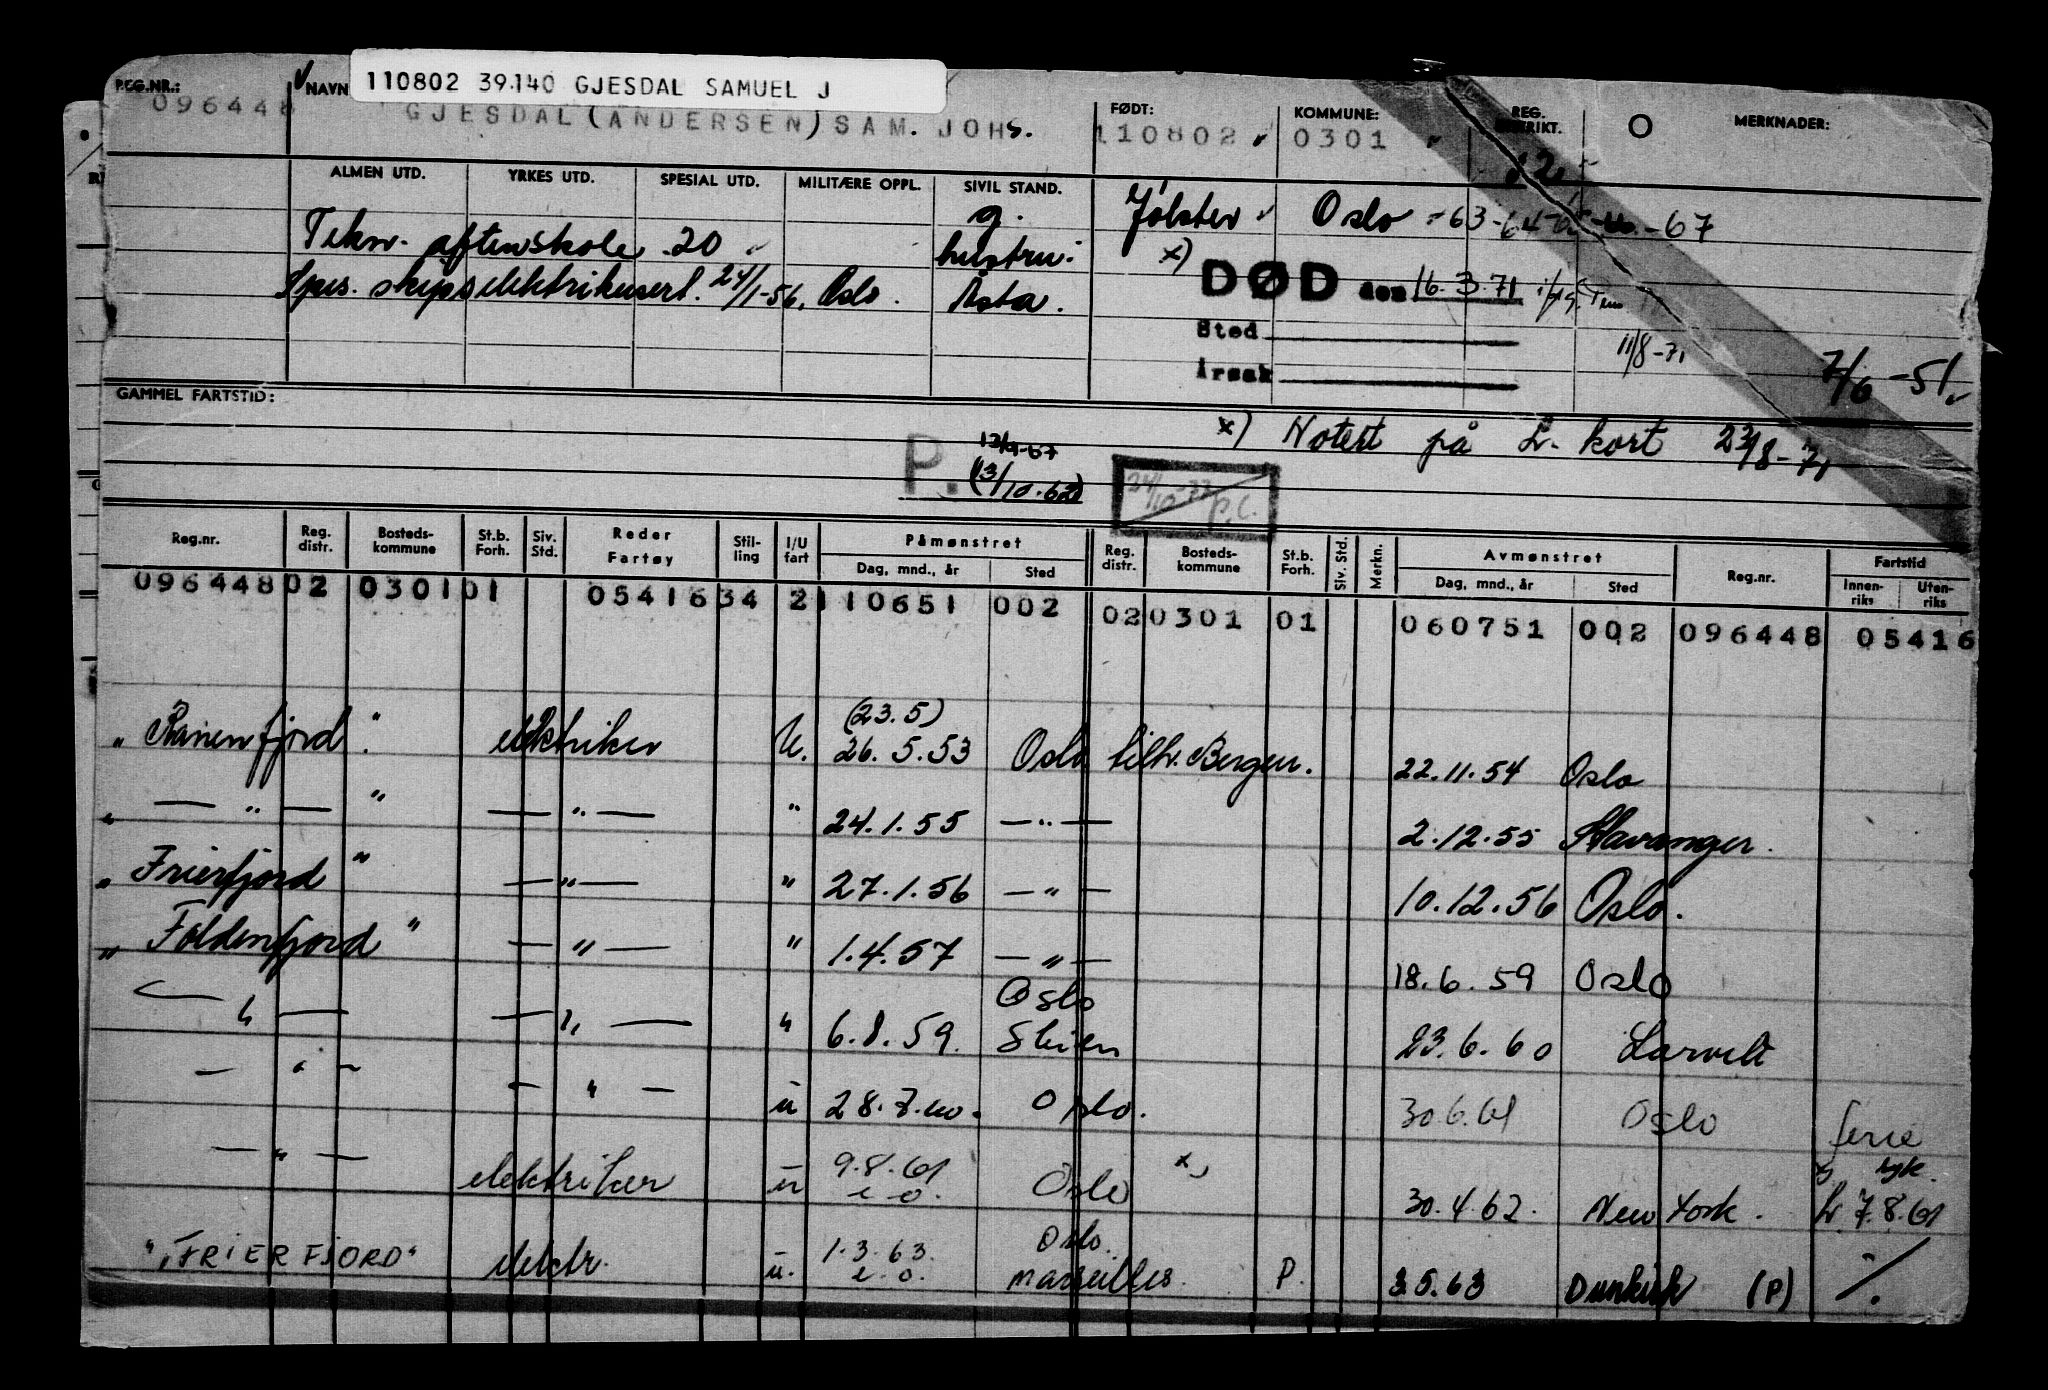 110802 39.140 GJESDAL SAMUEL J
REG.NR.: NAVN FØDT: KOMMUNE: REG. DISTRIKT. O MERKNADER:
096448 GJESDAL (ANDERSEN) SAM. JOHS. 110802 0301
ALMEN UTD. YRKES UTD. SPESIAL UTD. MILITÆRE OPPL. SIVIL STAND. 12
g. Jølster Oslo -63-64-65-66-67
Tekn. aftenskole 20 hustru:
Spes. skipselektrikersert. 24/1-56. Oslo. Åsta. x)
DØD den 16.3.71
Sted 11/8-71
Årsak 7/6-51.
GAMMEL FARTSTID:
x) Notert på L. kort 23/8-71
P. 12/9-67
(3/10.62) P.C.
Reg.nr. Reg. distr. Bosteds-kommune St.b. Forh. Siv. Std. Reder Fartøy Stil-ling I/U fart Påmønstret Reg. distr. Bosteds-kommune St.b. Forh. Siv. Std. Merkn. Avmønstret Reg.nr. Fartstid
Dag, mnd., år Sted Dag, mnd., år Sted Innen-riks Uten-riks
096448 02 0301 01 05416 34 2 110651 002 02 0301 01 060751 002 096448 05416
(23.5)
" Ranenfjord " elektriker U. 26.5.53 Oslo tilh. Bergen. 22.11.54 Oslo
" — " — " — " — " 24.1.55 — " — 2.12.55 Stavanger.
" Frierfjord " — " — " 27.1.56 — " — 10.12.56 Oslo.
" Foldenfjord " — " — " 1.4.57 — " — 18.6.59 Oslo
Oslo
— " — — " — " 6.8.59. Skien 23.6.60 Larvik
— " — — " — u 28.7.60. Oslo. 30.6.61 Oslo ferie
— " — elektriker u 9.8.61 Oslo x) 30.4.62. New York. syk.
e.o. L 7.8.61
"FRIERFJORD" elektr. u. 1.3.63. Oslo.
e.o. Marseilles. P. 3.5.63 Dunkirk (P) -/.